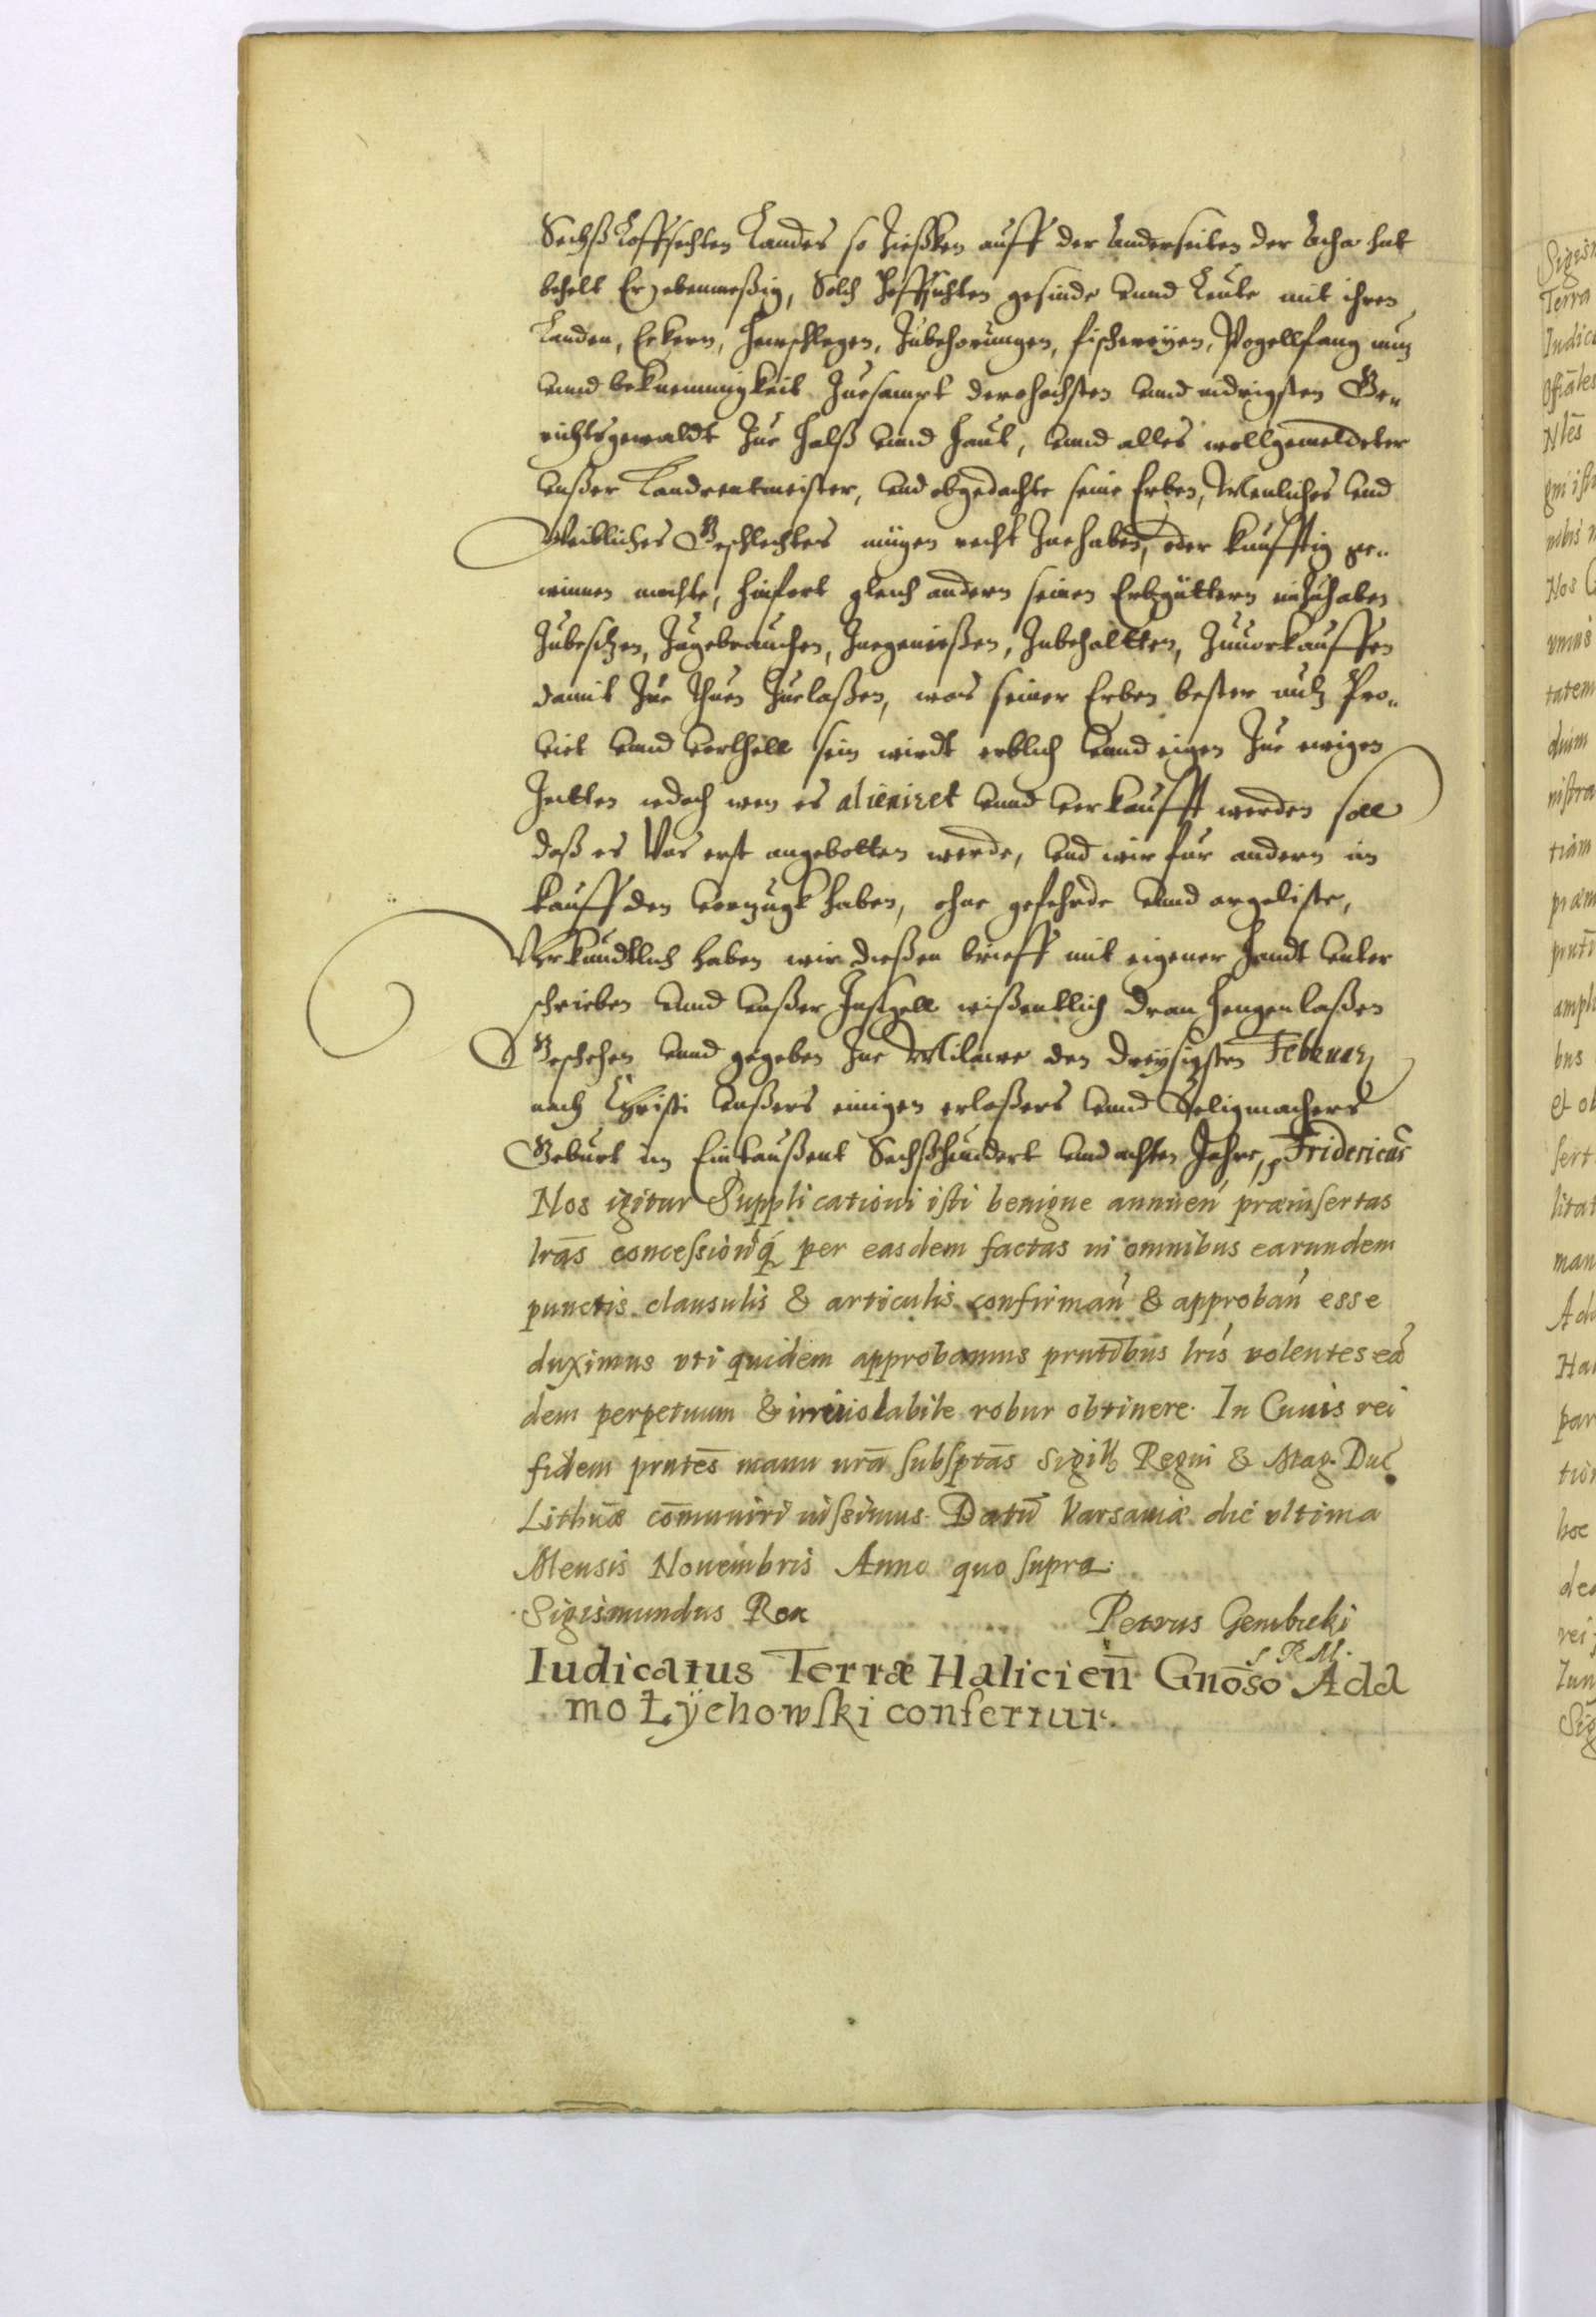 Sechß Loffstehlen Landes so Zießken auff der anderseiten der Acha hat
behelt Er ebenmeßig, Solch Hoffsuhlen gesinde unnd Leute mit ihren
Landen, Eckern, Hewschlegen, Zubehorungen, fischereyen, Vogellfang nuz
unnd bekuemmigkeit Zuesampt derohochsten unnd nidrigsten Ge„
richtsgewaldt Zue Halß unnd Haut, unnd alles wollgemeldeter
unßer Landrentmeister, und obgedachte seine Erben, Menliches und
Weibliches Geschlechtes mügen recht Zuehaben, oder kunfftig ge„
winnen mochte, hinfort gleich andern seinen Erbgüttern einZuhaben
Zubesitzen, Zugebrauchen, Zuegenießen, Zubehaltten, Zuuorkauffen
damit Zue thuen Zuelaßen, was seiner Erben bester nutz Pro„
uit unnd vortheill sein wirdt erblich unnd eigen Zue ewigen
Zeitten iedoch wen es alieniret unnd verkaufft werden soll
daß es Uns erst angebotten werde, und wir für andern im
kauff den vorzugk haben, ohne gefehrde unnd argeliste,
Uhrkundtlich haben wir dießen brieff mit eigener Handt unter
schrieben unnd unßer Insiegell wißentlich dran hengen laßen
Geschehen unnd gegeben Zue Mitawe den dreysigsten Februar
nach Christi unßers einigen erlößers unnd Seligmachers
Geburt im Eintaußent Sechßhundert und achten Jahre, Fridericus
Nos igitur Supplicationi isti benigne annuen̄ præinsertas
lrās concessionēq́ per easdem factas in omnibus earundem
punctis clausulis & articulis confirman̄ & approban̄ esse
duximus vti quidem approbamus prntibus lris volentes eas
dem perpetuum & inuiolabile robur obtinere. In Cuius rei
fidem prntēs manu nrā subsptās Sigill Regni & Mag. Duc
Lithuæ com̄uniri iussimus. Datū Varsauiæ die vltima
Mensis Nouembris Anno quo supra.
Sigismundus Rex Petrus Gembicki
S R M.
Iudicatus Terræ Halicien̄ Gnōso Ada
mo Łÿchowski confertur.